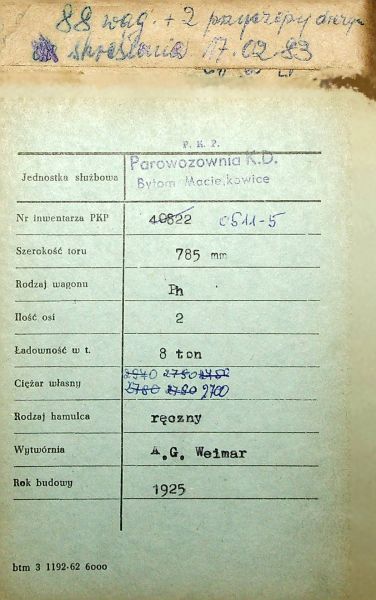 88 wag. + 2 przyczepy
skreślenia 17.02.83
P. K. P.
Jednostka służbowa
Parowozownia K.D.
Bytom Maciejkowice
Nr inwentarza PKP 40822 0511-5
Szerokość toru 785 mm
Rodzaj wagonu Ph
Ilość osi 2
Ładowność w t. 8 ton
2940 2750
Ciężar własny 2780 2780 2700
Rodzaj hamulca ręczny
Wytwórnia A.G. Weimar
Rok budowy 1925
btm 3 1192-62 6000